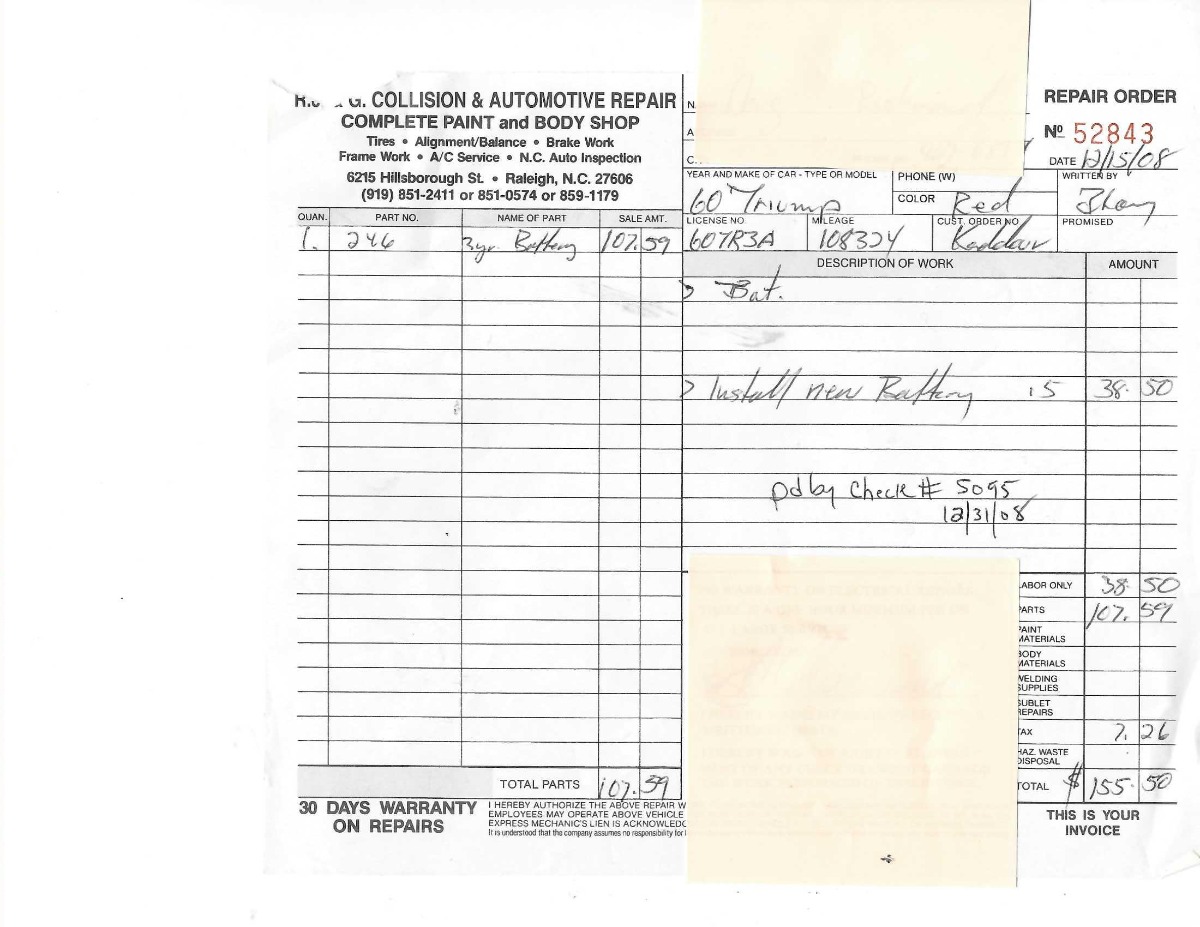 G. COLLISION & AUTOMOTIVE REPAIR
COMPLETE PAINT and BODY SHOP
Tires • Alignment/Balance • Brake Work
Frame Work • A/C Service • N.C. Auto Inspection
6215 Hillsborough St. • Raleigh, N.C. 27606
(919) 851-2411 or 851-0574 or 859-1179
REPAIR ORDER
Nº 52843
DATE 12/15/08
YEAR AND MAKE OF CAR - TYPE OR MODEL
60 Triump
PHONE (W)
COLOR Red
WRITTEN BY
LICENSE NO
607R3A
MILEAGE
108324
CUST. ORDER NO
PROMISED
QUAN. PART NO. NAME OF PART SALE AMT.
1. 246 3yr. Battery 107.59
DESCRIPTION OF WORK AMOUNT
> Bat.
> Install new Battery .5 38.50
pd by Check # 5095
12/31/08
LABOR ONLY 38.50
PARTS 107.59
PAINT MATERIALS
BODY MATERIALS
WELDING SUPPLIES
SUBLET REPAIRS
TAX 7.26
HAZ. WASTE DISPOSAL
TOTAL $ 155.50
TOTAL PARTS 107.59
30 DAYS WARRANTY
ON REPAIRS
I HEREBY AUTHORIZE THE ABOVE REPAIR W
EMPLOYEES MAY OPERATE ABOVE VEHICLE
EXPRESS MECHANIC'S LIEN IS ACKNOWLEDG
It is understood that the company assumes no responsibility for
THIS IS YOUR
INVOICE